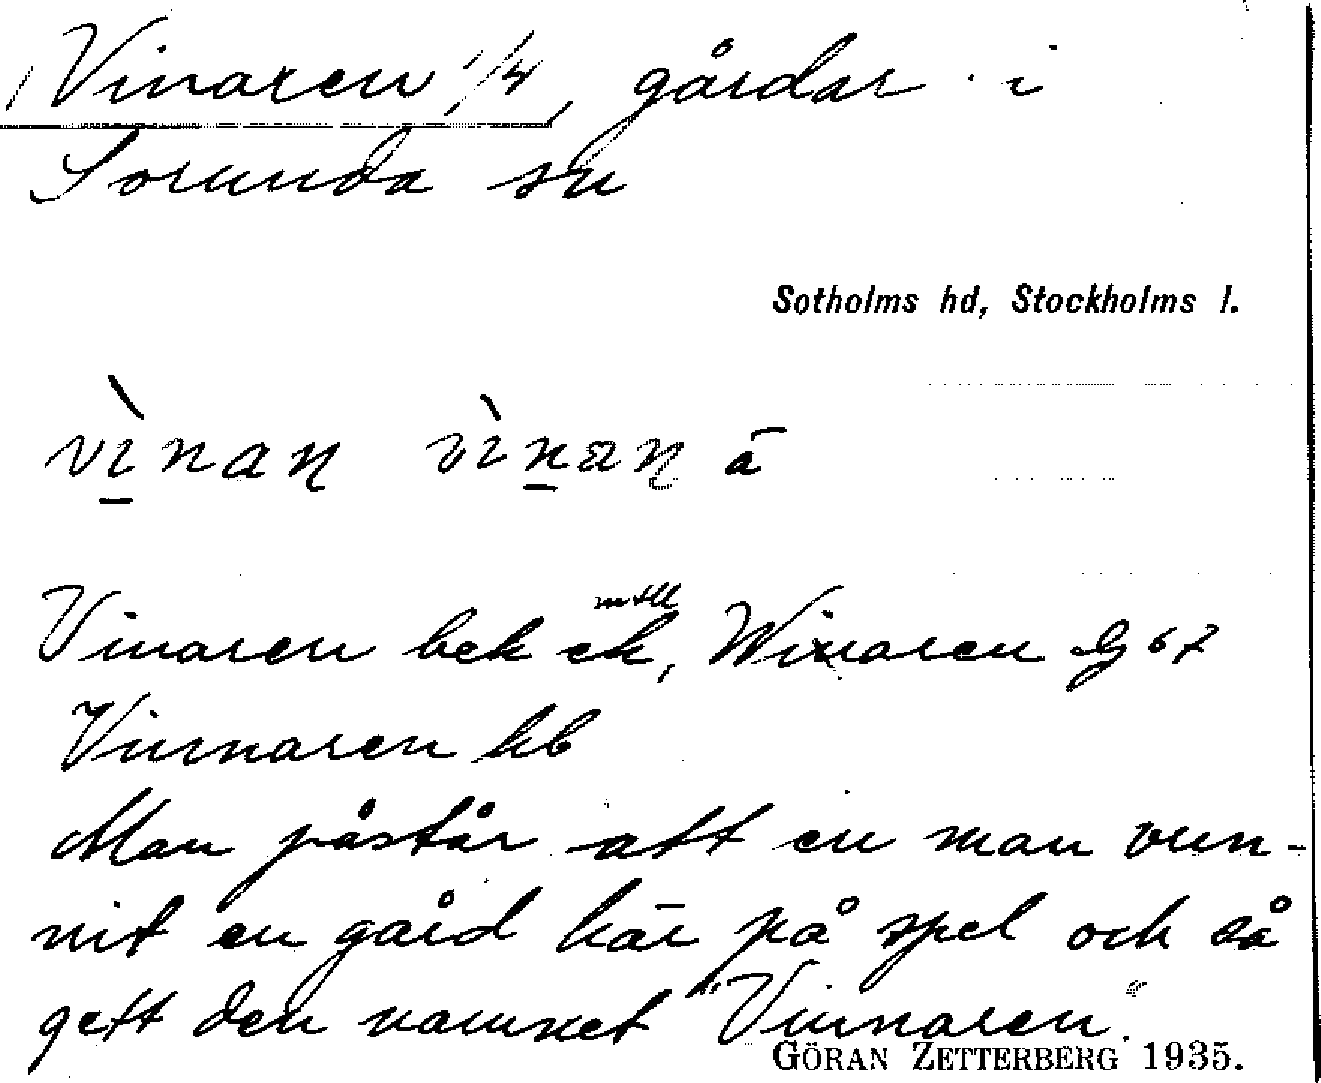 Vinaren 1/4, gårdar i
Sorunda sn
Sotholms hd, Stockholms l.
vìnan vìnan ā
Vinaren bek ek, mtll Winaren G 67
Vinnaren hb
Man påstår att en man vun-
nit en gård här på spel och så
gett den namnet "Vinnaren".
GÖRAN ZETTERBERG 1935.